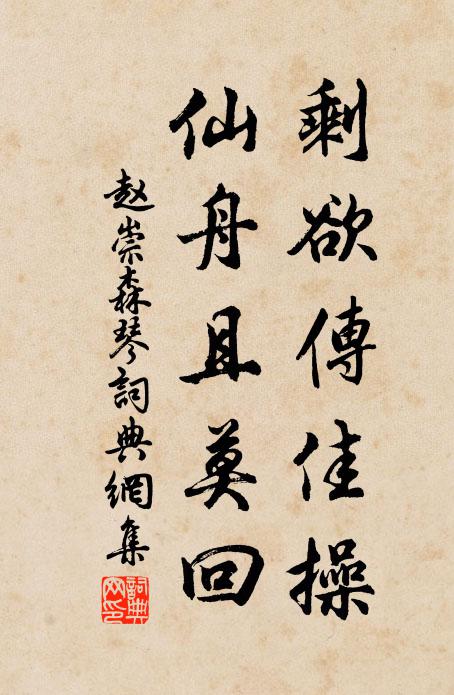 剩欲傳佳操
仙舟且莫回
赵崇森琴詞典網集
詞典網印